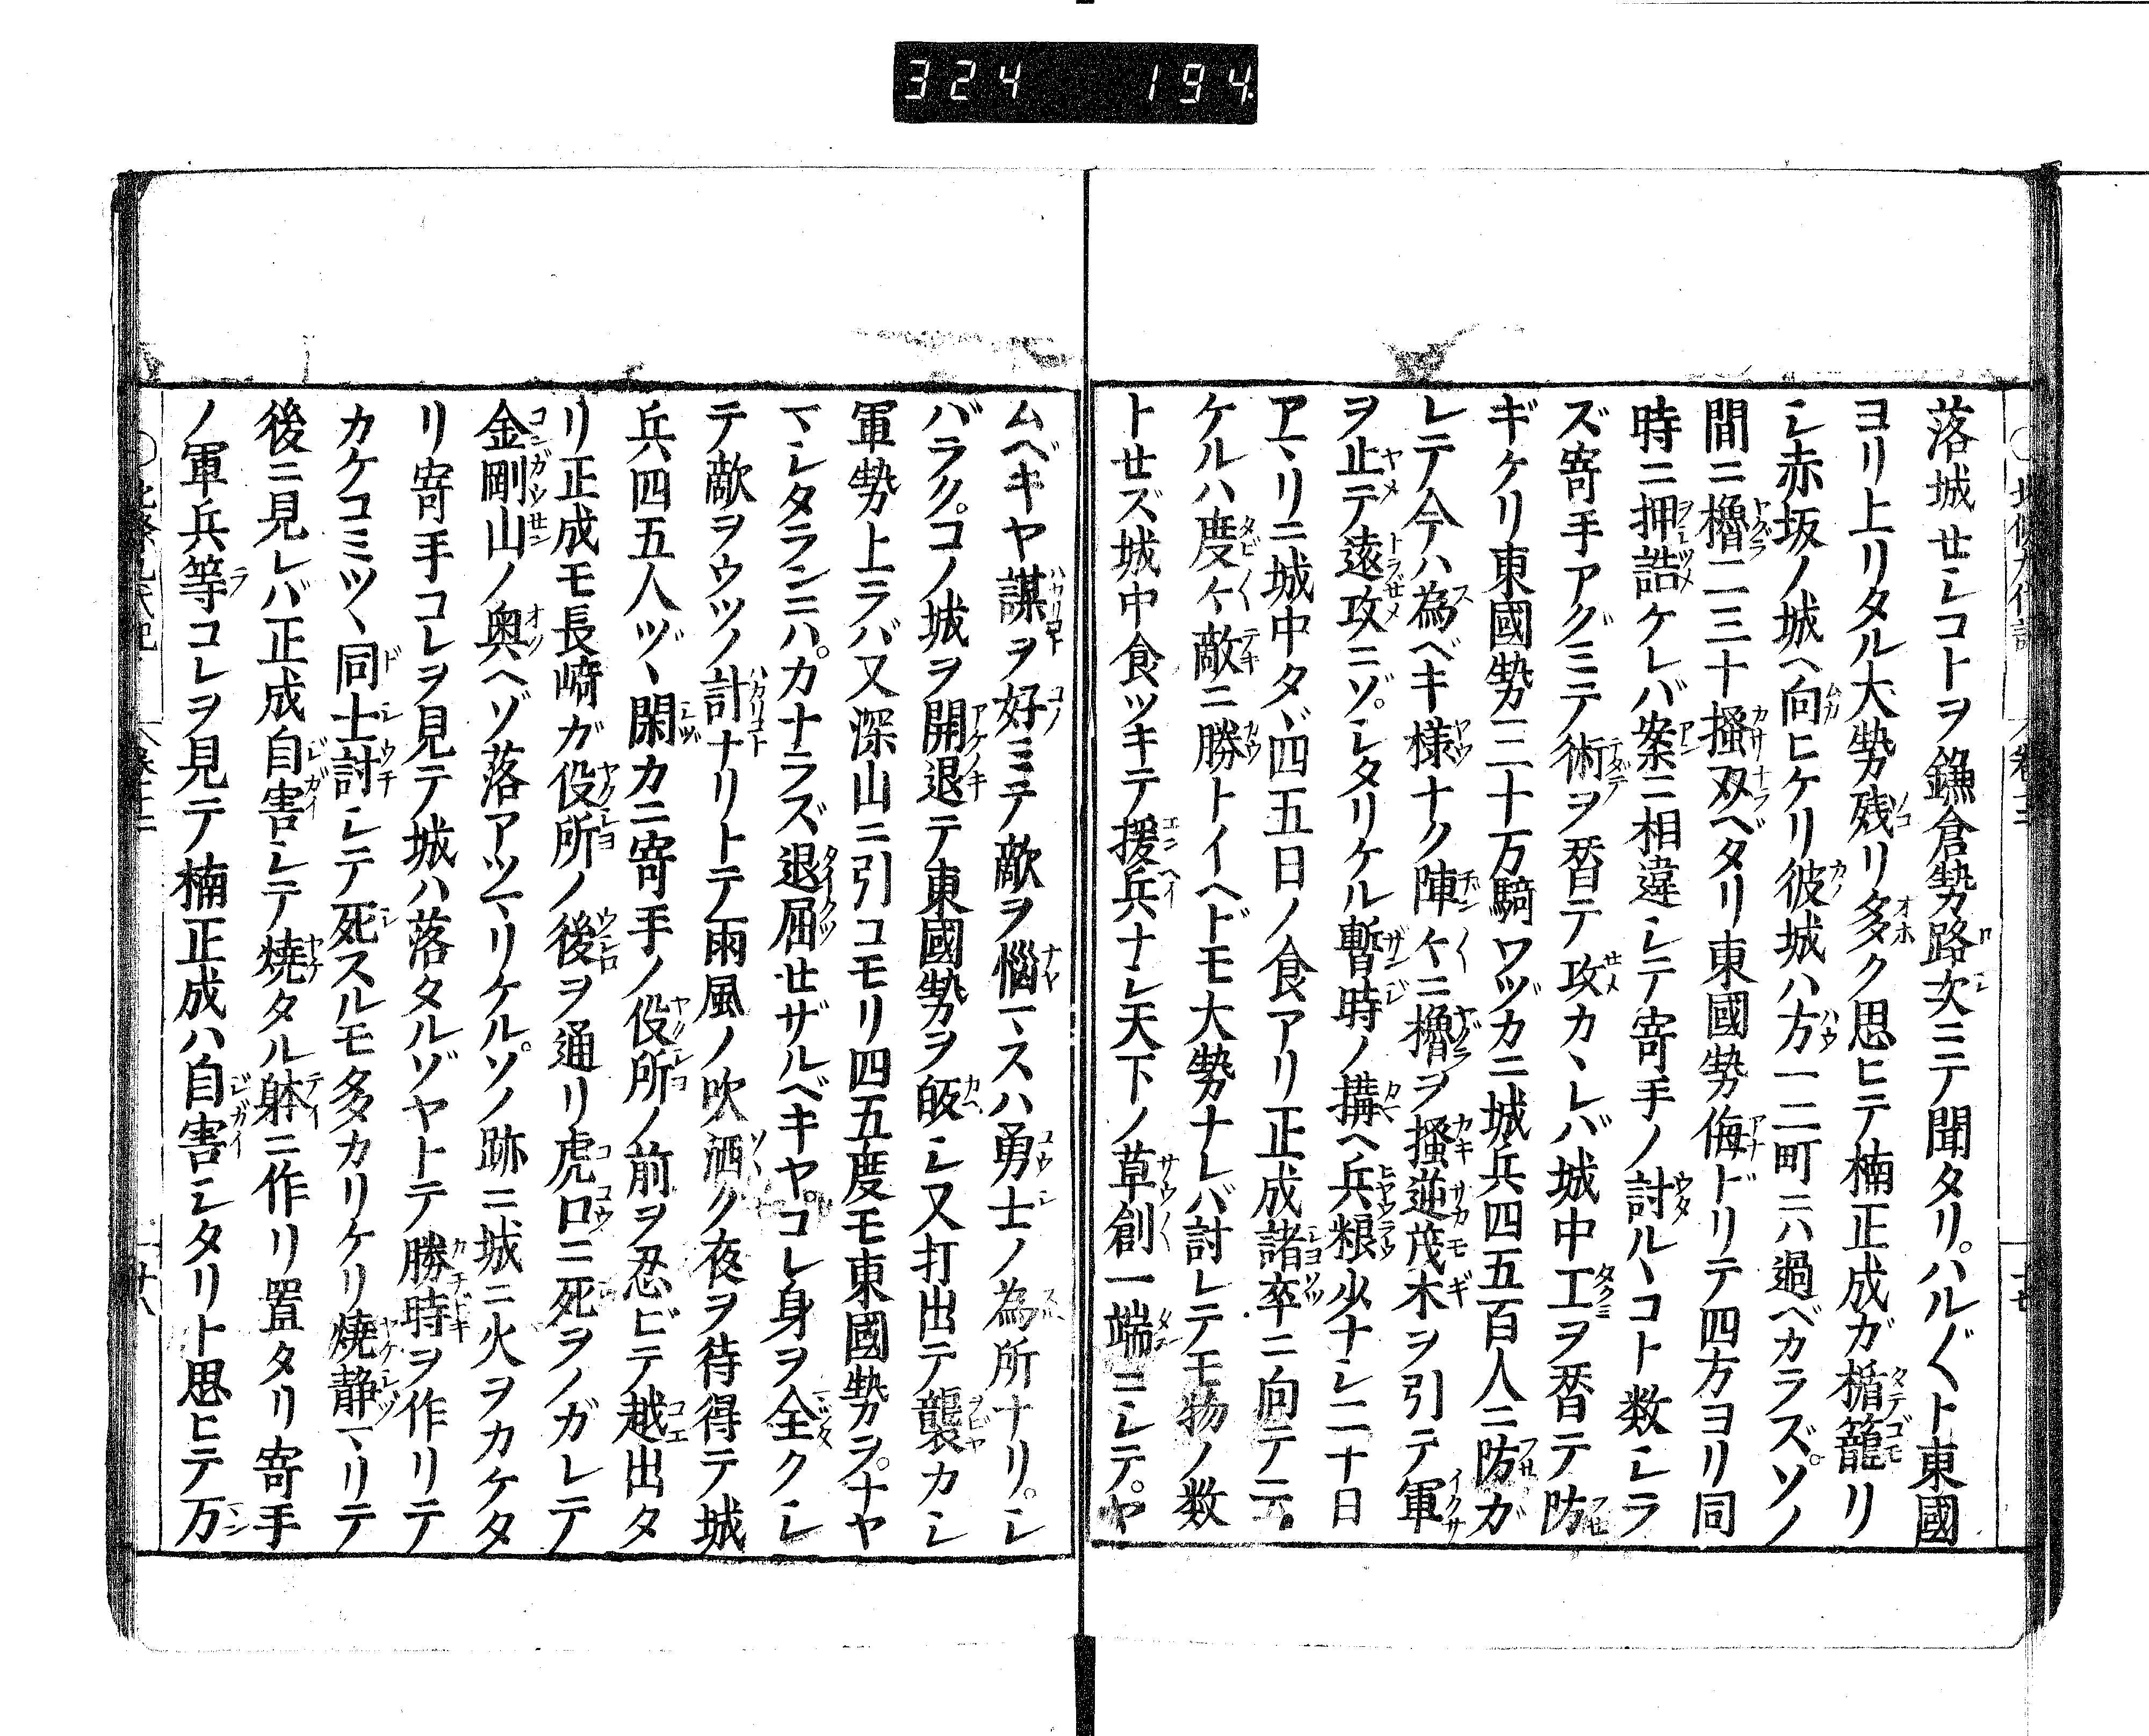 324 194.
落城セシコトヲ鎌倉勢路次ニテ聞タリ。ハル〲ト東國
ヨリ上リタル大勢残リ多ク思ヒテ楠正成ガ楯籠リ
シ赤坂ノ城ヘ向ヒケリ彼城ハ方一二町ニハ過ベカラズ。ソノ
間ニ櫓二三十搔双ベダリ東國勢侮ドリテ四方ヨリ同
時ニ押詰ケレバ案ニ相違シテ寄手ノ討ルヽコト数シラ
ズ寄手アグミテ術ヲ替テ攻カヽレバ城中工ヲ替テ防
ギケリ東國勢三十万騎ワヅカニ城兵四五百人ニ防ガ
レテ今ハ為ベキ様ナク陣々ニ櫓ヲ搔逆茂木ヲ引テ軍
ヲ止テ遠攻ニゾ。シタリケル暫時ノ搆ヘ兵粮少ナシ二十日
アマリニ城中タヾ四五日ノ食アリ正成諸卒ニ向テ云。
ケルハ度々敵ニ勝トイヘドモ大勢ナレバ討レテモ物ノ数
トセズ城中食ツキテ援兵ナシ天下ノ草創一端ニシテ。ヤ
ムベキヤ謀ヲ好ミテ敵ヲ惱マスハ勇士ノ為所ナリ。シ
バラク。コノ城ヲ開退テ東國勢ヲ皈シ又打出テ襲カシ
軍勢上ラバ又深山ニ引コモリ四五度モ東國勢ヲ。ナヤ
マシタランニハ。カナラズ退屈セザルベキヤ。コレ身ヲ全クシ
テ敵ヲウツノ計ナリトテ雨風ノ吹洒ク夜ヲ待得テ城
兵四五人ヅヽ閑カニ寄手ノ役所ノ前ヲ忍ビテ越出タ
リ正成モ長﨑ガ役所ノ後ヲ通リ虎口ニ死ヲノガレテ
金剛山ノ奥ヘゾ落アツマリケル。ソノ跡ニ城ニ火ヲカケタ
リ寄手コレヲ見テ城ハ落タルゾヤトテ勝時ヲ作リテ
カケコミツヽ同士討シテ死スルモ多カリケリ燒静マリテ
後ニ見レバ正成自害シテ燒タル躰ニ作リ置タリ寄手
ノ軍兵等コレヲ見テ楠正成ハ自害シタリト思ヒテ万